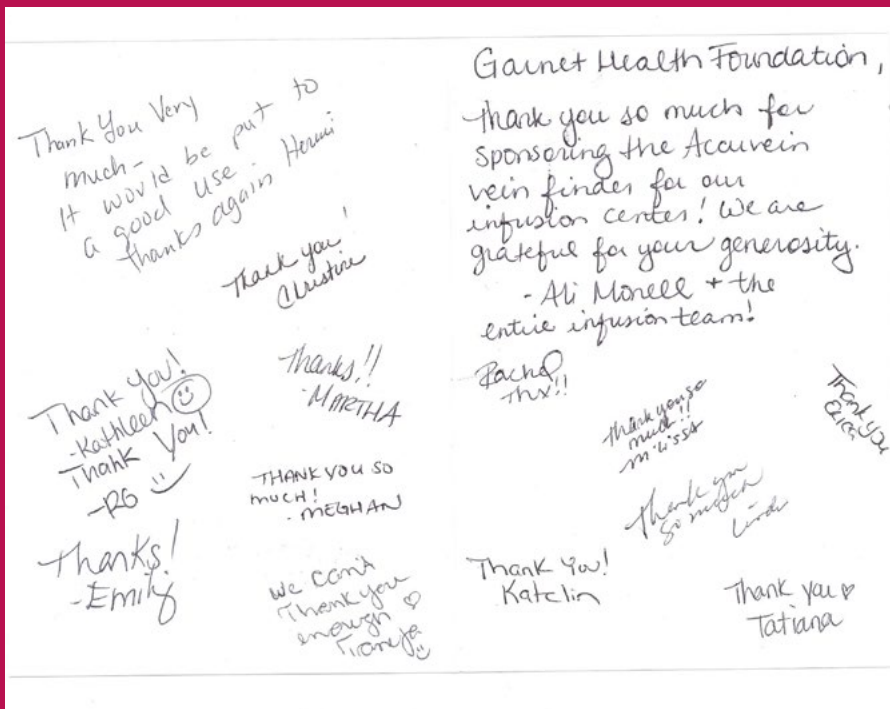 Thank You Very
much-
It would be put to
a good use.
thanks again
Thank you!
Christine
Thank You!
-Kathleen
Thank You!
-RG
Thanks!!
-MARTHA
THANK YOU SO
MUCH!
- MEGHAN
Thanks!
-Emily
We can't
Thank you
enough
Garnet Health Foundation,
Thank you so much for
sponsoring the Accuvein
vein finder for our
infusion center! We are
grateful for your generosity.
- Ali Morell + the
entire infusion team!
Rachel
Thx!!
Thank you so
much!!
Milissa
Thank you
Thank you
so much
Linda
Thank You!
Katelin
Thank you
Tatiana